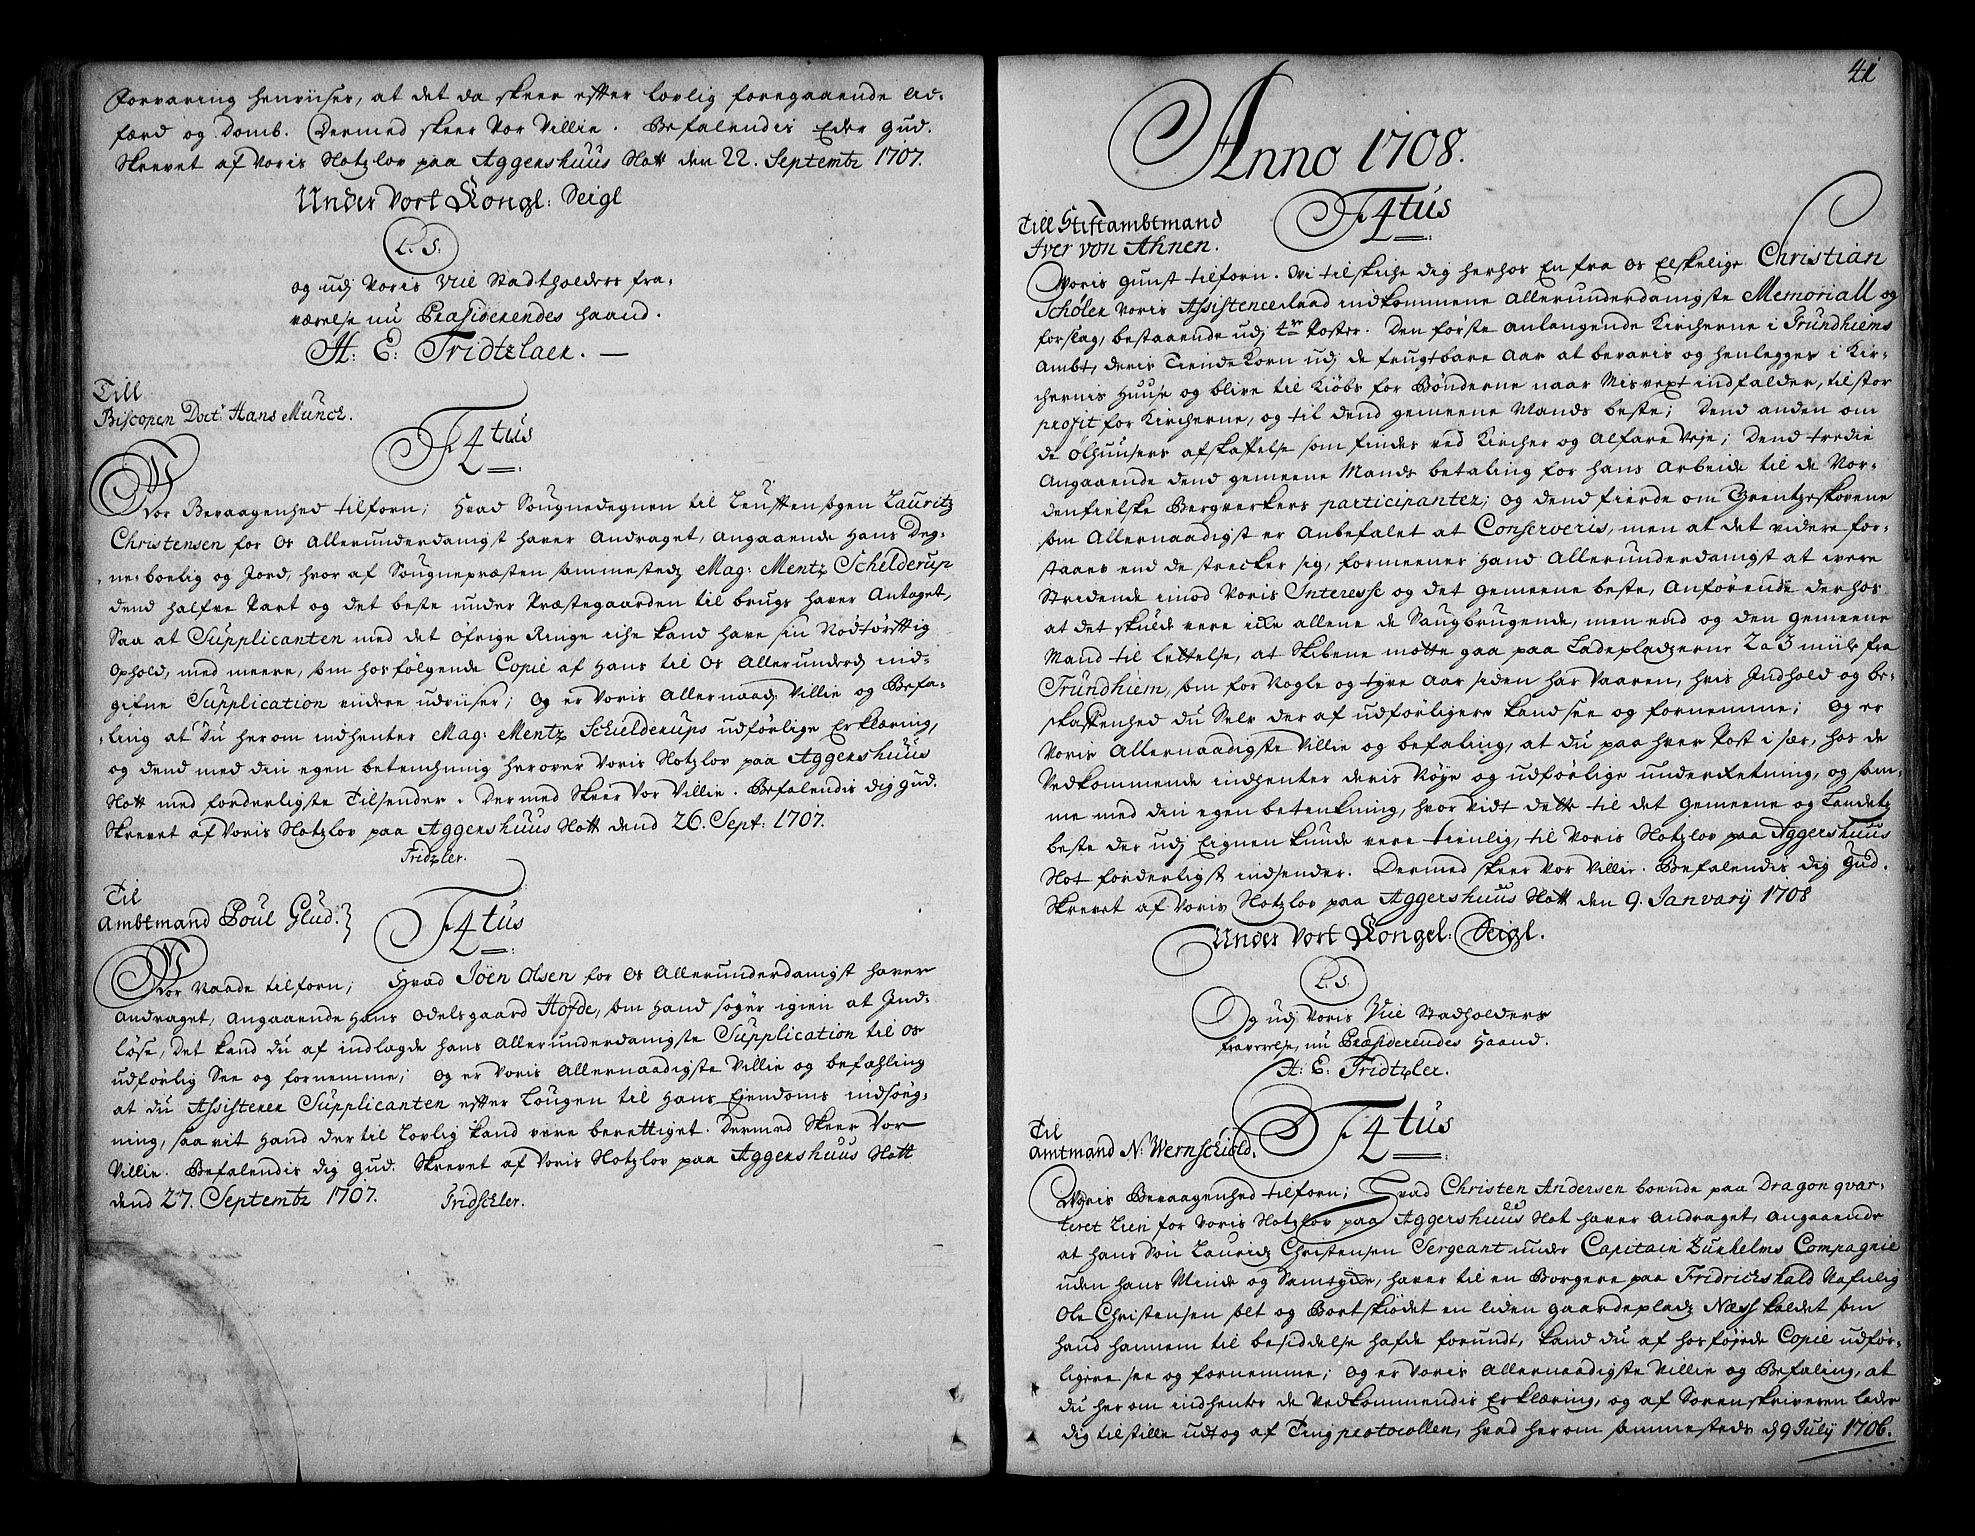 forvaring henviiser, at det da skeer efter lovlig foregaaende ad-
færd og Domb. Dermed skeer Vor Villie. Befalendis Eder Gud.
Skrevet af Voris Slotzlov paa Aggershuus Slott den 22. Septembr 1707.
Under Vort Kongl: Seigl
L.S.
og udj Voris Vice Stadtholders fra-
værelse nu Præsiderendes haand.
H: E: Fridtzlaer. —
Till
Biscopen Doct. Hans Munch.
F4tus
Vor Bevaagenhed tilforn; Hvad Sougnedegnen til Leusten sogn Lauritz
Christensen for Os Allerunderdanigst haver Andraget, angaaende Hans Deg-
ne-boelig og Jord, hvor af Sougnepræsten sammestedz Mag: Mentz Schelderup
dend halfve Part og det beste under Præstegaarden til brugs haver Antaget,
Saa at Supplicanten med det Øfrige Ringe iche kand have sin Nødtørfftig
Ophold, med meere, som hosfølgende Copie af hans til Os Allerunderd. ind-
gifne Supplication videre udviiser; Og er Voris Allernaad: Villie og Befa-
ling at Du herom indhenter Mag: Mentz Schielderups udførlige Erklæring,
og dend med din egen betenchning herover Voris Slotzlov paa Aggershuus
Slott med forderligste Tilsender. Dermed Skeer Vor Villie. Befalendis dig Gud.
Skrevet af Voris Slotzlov paa Aggershuus Slott dend 26. Sept: 1707.
Fridzler.
Til
Ambtmand Poul Glud.}
F4tus
Vor Naade tilforn; Hvad Joen Olsen for Os Allerunderdanigst haver
Andraget, Angaaende Hans Odelsgaard Hofde, som Hand søger igien at Ind-
løse, Det kand du af indlagde hans Allerunderdanigste Supplication til Os
udførlig See og fornemme; Og er Voris Allernaadigste Villie og befahling
at du Assisterer Supplicanten efter Lougen til Hans Eiendoms indsøg-
ning, saavit Hand der til Lovlig kand være berettiget. Dermed Skeer Vor
Villie. Befalendis dig Gud. Skrevet af Voris Slotzlov paa Aggershuus Slott
dend 27. Septembr 1707. Fridseler.
41
Anno 1708.
F4tus
Till Stiftambtmand
Iver von Ahnen.
Voris Gunst tilforn. Vi tilskiche dig herhos En fra Os Elskelige Christian
Schøler Voris Assistence Raad indkommene Allerunderdanigste Memoriall og
forslag, bestaaende udj 4re Poster. Den første anlangende Kircherne i Trundhiems
Ambt, deris Tiende Korn udj de frugtbare Aar at bevaris og henlegges i Kir-
chernis Huuse og blive til Kiøbs for Bønderne naar Misvext indfalder, til stor
profit for Kircherne, og til dend gemeene Mands beste; Dend anden om
de Ølhuusers afskaffelse som findes ved Kircher og Alfare Veje; Dend tredie
Angaaende dend gemeene Mands betaling for hans Arbeide til de Nor-
denfielske Bergverkers participanter; og dend fierde om Grentzeskovene
som Allernaadigst er Anbefalet at Conserveris, men at det videre for-
staaes end de strecker sig, formeener Hand Allerunderdanigst at være
Stridende imod Voris Interesse og det Gemeene beste, Anførende derhos
at det skulde være icke allene de Saugbrugende, men end og den Gemeene
Mand til Lettelse, at Skibene motte gaa paa Ladepladzerne 2 a 3 miile fra
Trundhiem, som for Nogle og tyve Aar siden har Vaaren, hvis Indhold og be-
skaffenhed du Selv der af udførligere kand see og fornemme; Og er
Voris Allernaadigste Villie og befaling, at du paa hver Post i sær, hos de
Vedkommende indhenter deris Nøje og udførlige underretning, og sam-
me med din egen betenkning, hvor vidt dette til det Gemeene og Landetz
beste der udj Egnen kunde være tienlig, til Voris Slotzlov paa Aggershuus
Slot forderligst indsender. Dermed skeer Vor Villie. Befalendis dig Gud.
Skrevet af Voris Slotzlov paa Aggershuus Slott den 9. January 1708
Under Vort Kongel: Seigl.
L.S.
Og udj Voris Vice Stadholders
fraværelse, nu Præsiderendes Haand.
H: E: Fridtzler.
F4tus
Til
Amtmand N: Wernschiold.
Voris Bevaagenhed tilforn; Hvad Christen Andersen boende paa Dragon qvar-
teret Lien for Voris Slotzlov paa Aggershuus Slot haver Andraget, Angaaende
at hans Søn Lauridz Christensen Sergeant under Capitain Zunhelms Compagnie
uden hans Minde og Samtyche, haver til en Borgere paa Fridrichshald Nafnlig
Ole Christensen solt og Bortskiødet en liden gaardeplads Næss kaldet som
hand hannem til besiddelse hafde forundt, kand du af hosføjede Copie udfør-
ligere see og fornemme; Og er Voris Allernaadigste Villie og Befaling, at
du herom indhenter de Vedkommendis Erklæring, og af Sorenskriveren lader
dig tilstille udtog af Tingprotocollen, hvad herom sammesteds d. 9 July 1706.